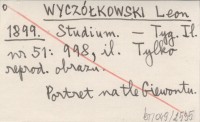 WYCZÓŁKOWSKI Leon
1899. Studium. — Tyg. Il.
nr 51: 998, il. Tylko
reprod. obrazu.
Portret na tle Giewontu.